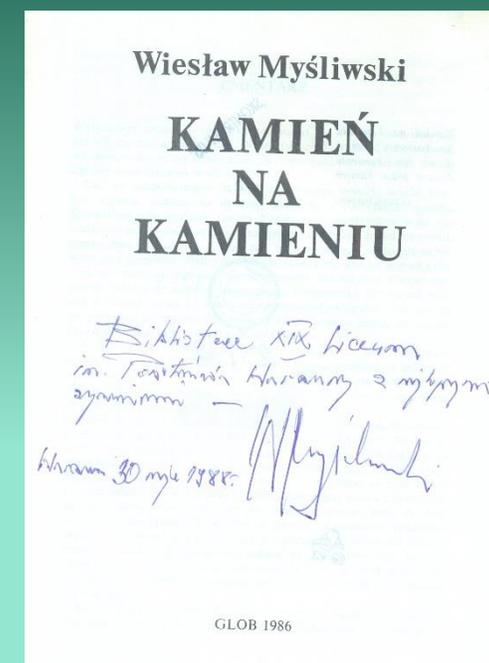 Wiesław Myśliwski
KAMIEŃ
NA
KAMIENIU
Bibliotece XIX Liceum
im. Powstańców Warszawy z najlepszymi
życzeniami —
Warszawa 30 maja 1988 r.
WMyśliwski
GLOB 1986